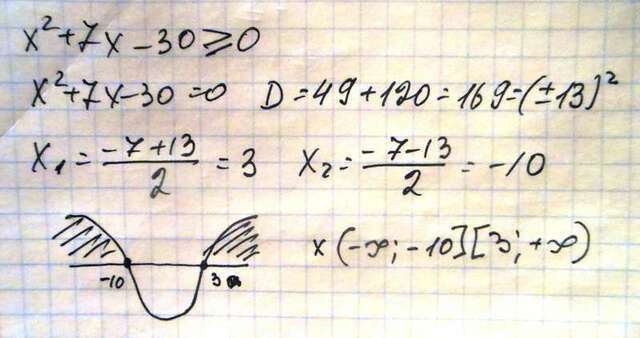 x²+7x-30⩾0
x²+7x-30=0 D=49+120=169=(±13)²
x₁=(-7+13)/2=3 x₂=(-7-13)/2=-10
x(-∞;-10][3;+∞)
-10 3